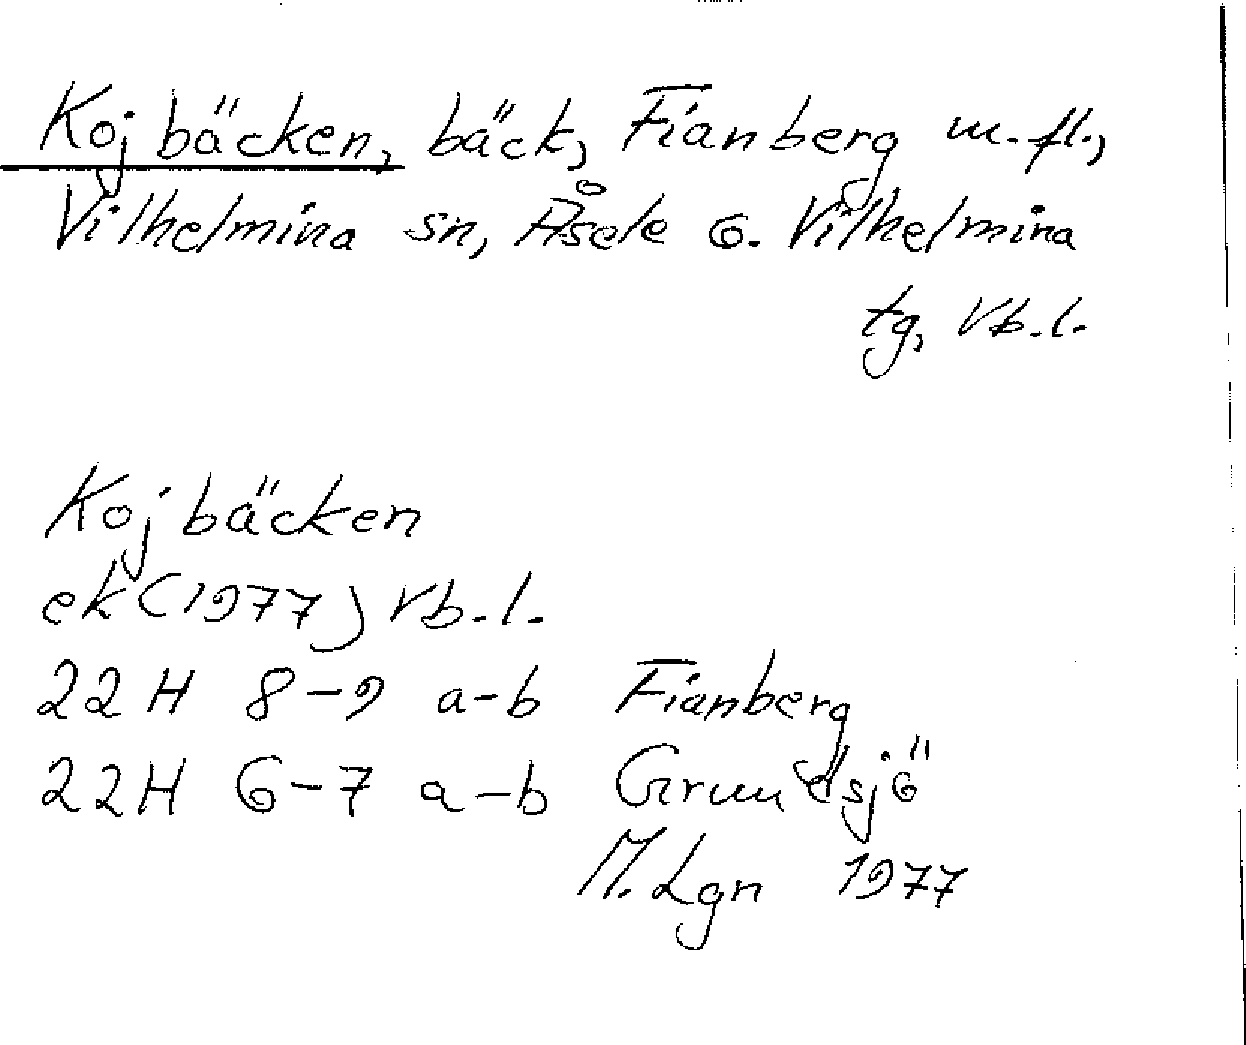 Kojbäcken, bäck, Fianberg m.fl.,
Vilhelmina sn, Åsele o. Vilhelmina
tg, Vb.l.
Kojbäcken
ek (1977) Vb.l.
22H 8-9 a-b Fianberg
22H 6-7 a-b Grundsjö
M. Lgn 1977